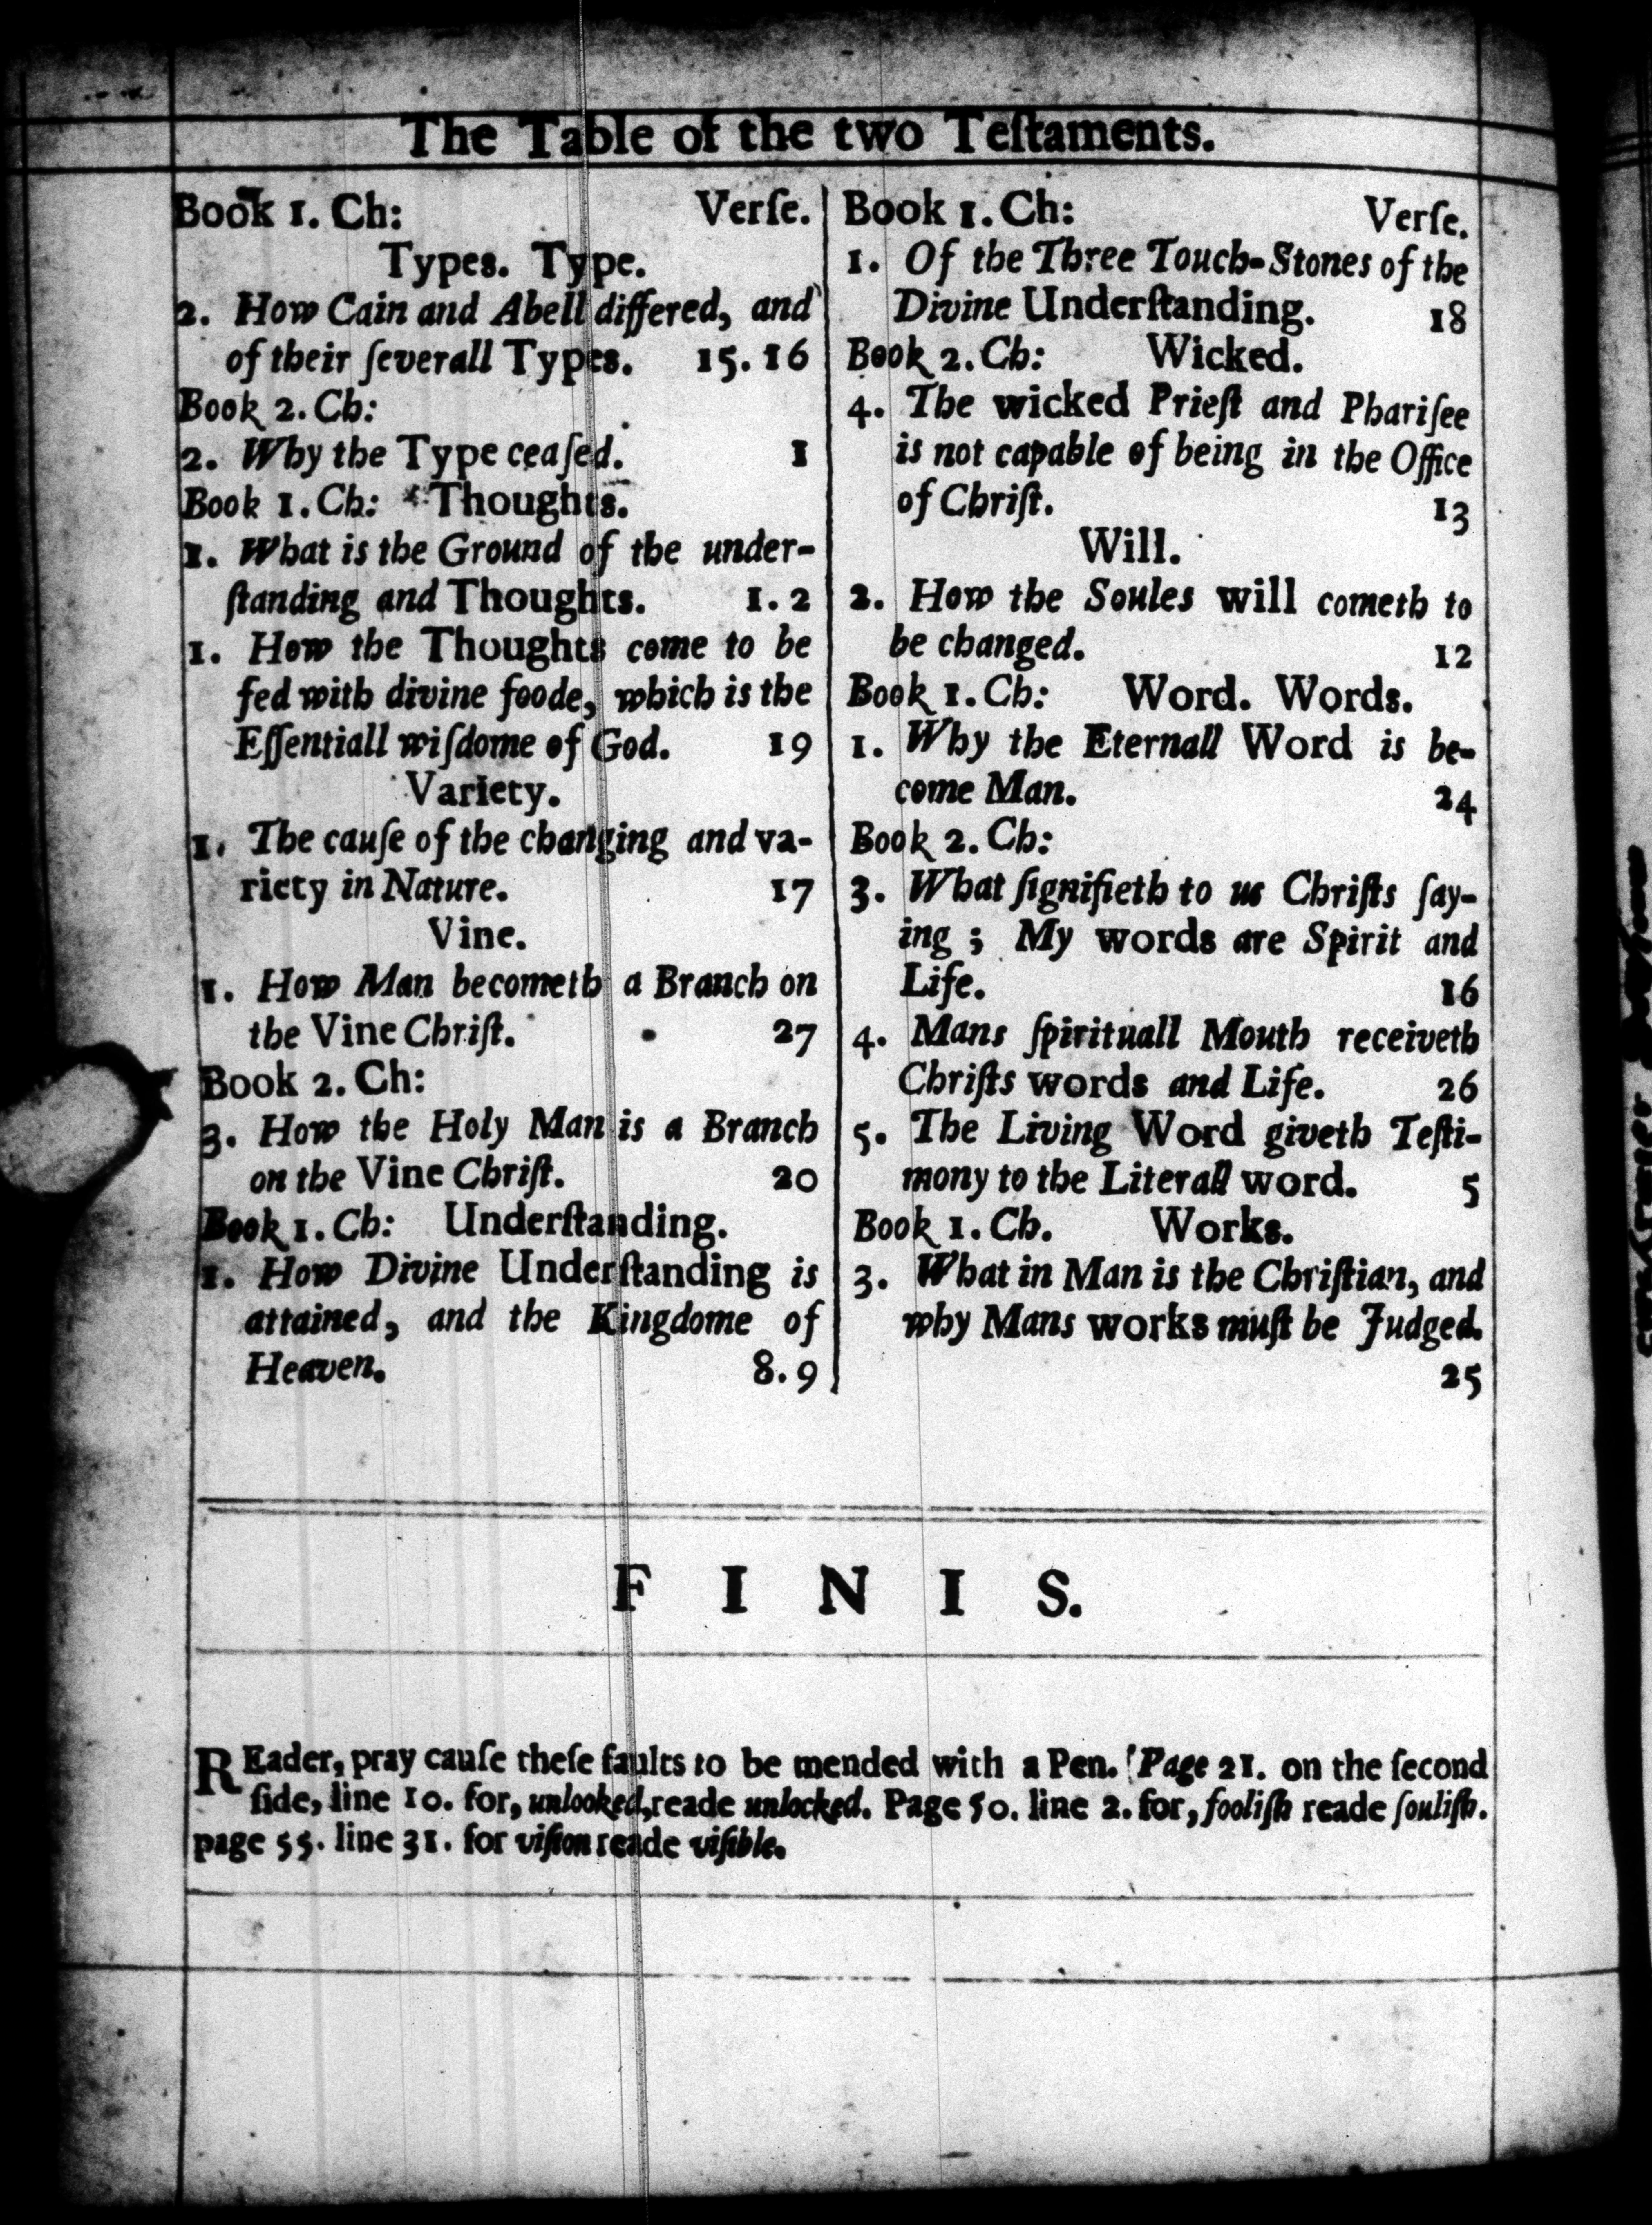 The Table of the two Teſtaments.
Book 1. Ch: Verſe.
Types. Type.
2. How Cain and Abell differed, and
of their ſeverall Types. 15. 16
Book 2. Ch:
2. Why the Type ceaſed. 1
Book 1. Ch: Thoughts.
1. What is the Ground of the under-
ſtanding and Thoughts. 1. 2
1. How the Thoughts come to be
fed with divine foode, which is the
Eſſentiall wiſdome of God. 19
Variety.
1. The cauſe of the changing and va-
riety in Nature. 17
Vine.
1. How Man becometh a Branch on
the Vine Chriſt. 27
Book 2. Ch:
3. How the Holy Man is a Branch
on the Vine Chriſt. 20
Book 1. Ch: Underſtanding.
1. How Divine Underſtanding is
attained, and the Kingdome of
Heaven. 8. 9
Book 1. Ch: Verſe.
1. Of the Three Touch-Stones of the
Divine Underſtanding. 18
Book 2. Ch: Wicked.
4. The wicked Prieſt and Phariſee
is not capable of being in the Office
of Chriſt. 13
Will.
2. How the Soules will cometh to
be changed. 12
Book 1. Ch: Word. Words.
1. Why the Eternall Word is be-
come Man. 24
Book 2. Ch:
3. What ſignifieth to us Chriſts ſay-
ing ; My words are Spirit and
Life. 16
4. Mans ſpirituall Mouth receiveth
Chriſts words and Life. 26
5. The Living Word giveth Teſti-
mony to the Literall word. 5
Book 1. Ch. Works.
3. What in Man is the Chriſtian, and
why Mans works muſt be Judged.
25
F I N I S.
REader, pray cauſe theſe faults to be mended with a Pen. Page 21. on the ſecond
ſide, line 10. for, unlooked, reade unlocked. Page 50. line 2. for, fooliſh reade ſouliſh.
page 55. line 31. for viſion reade viſible.